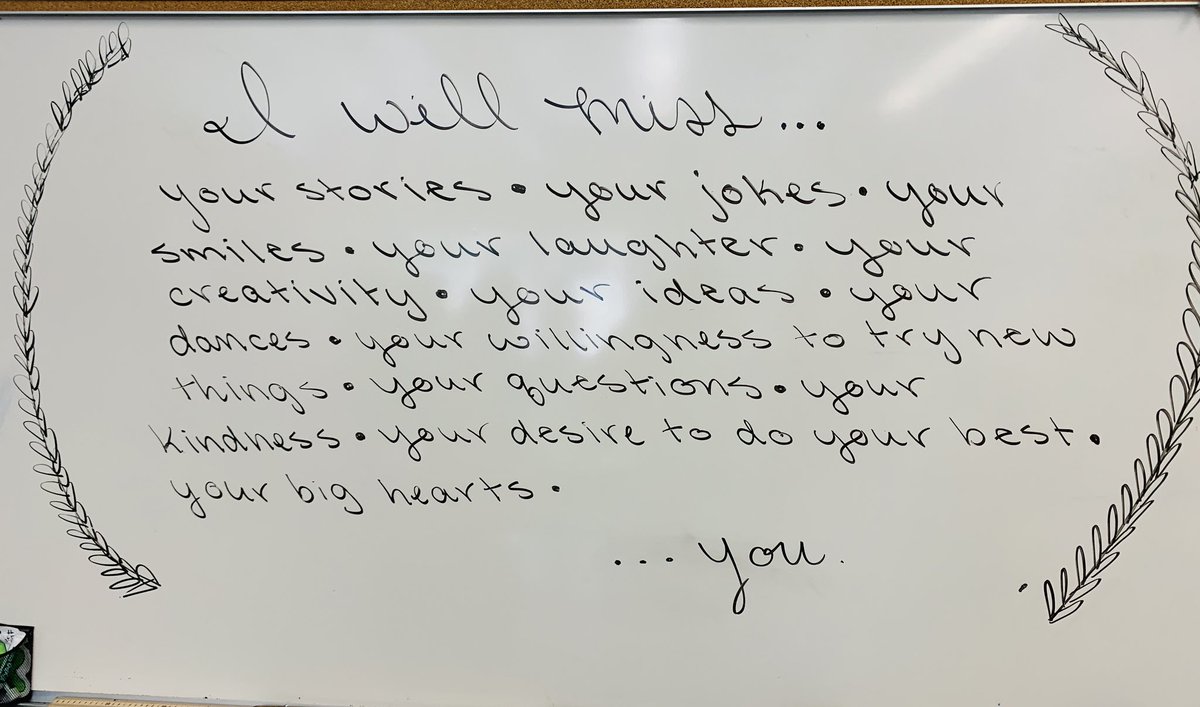 I will miss...
your stories • your jokes • your
smiles • your laughter • your
creativity • your ideas • your
dances • your willingness to try new
things • your questions • your
kindness • your desire to do your best •
your big hearts •
... you.